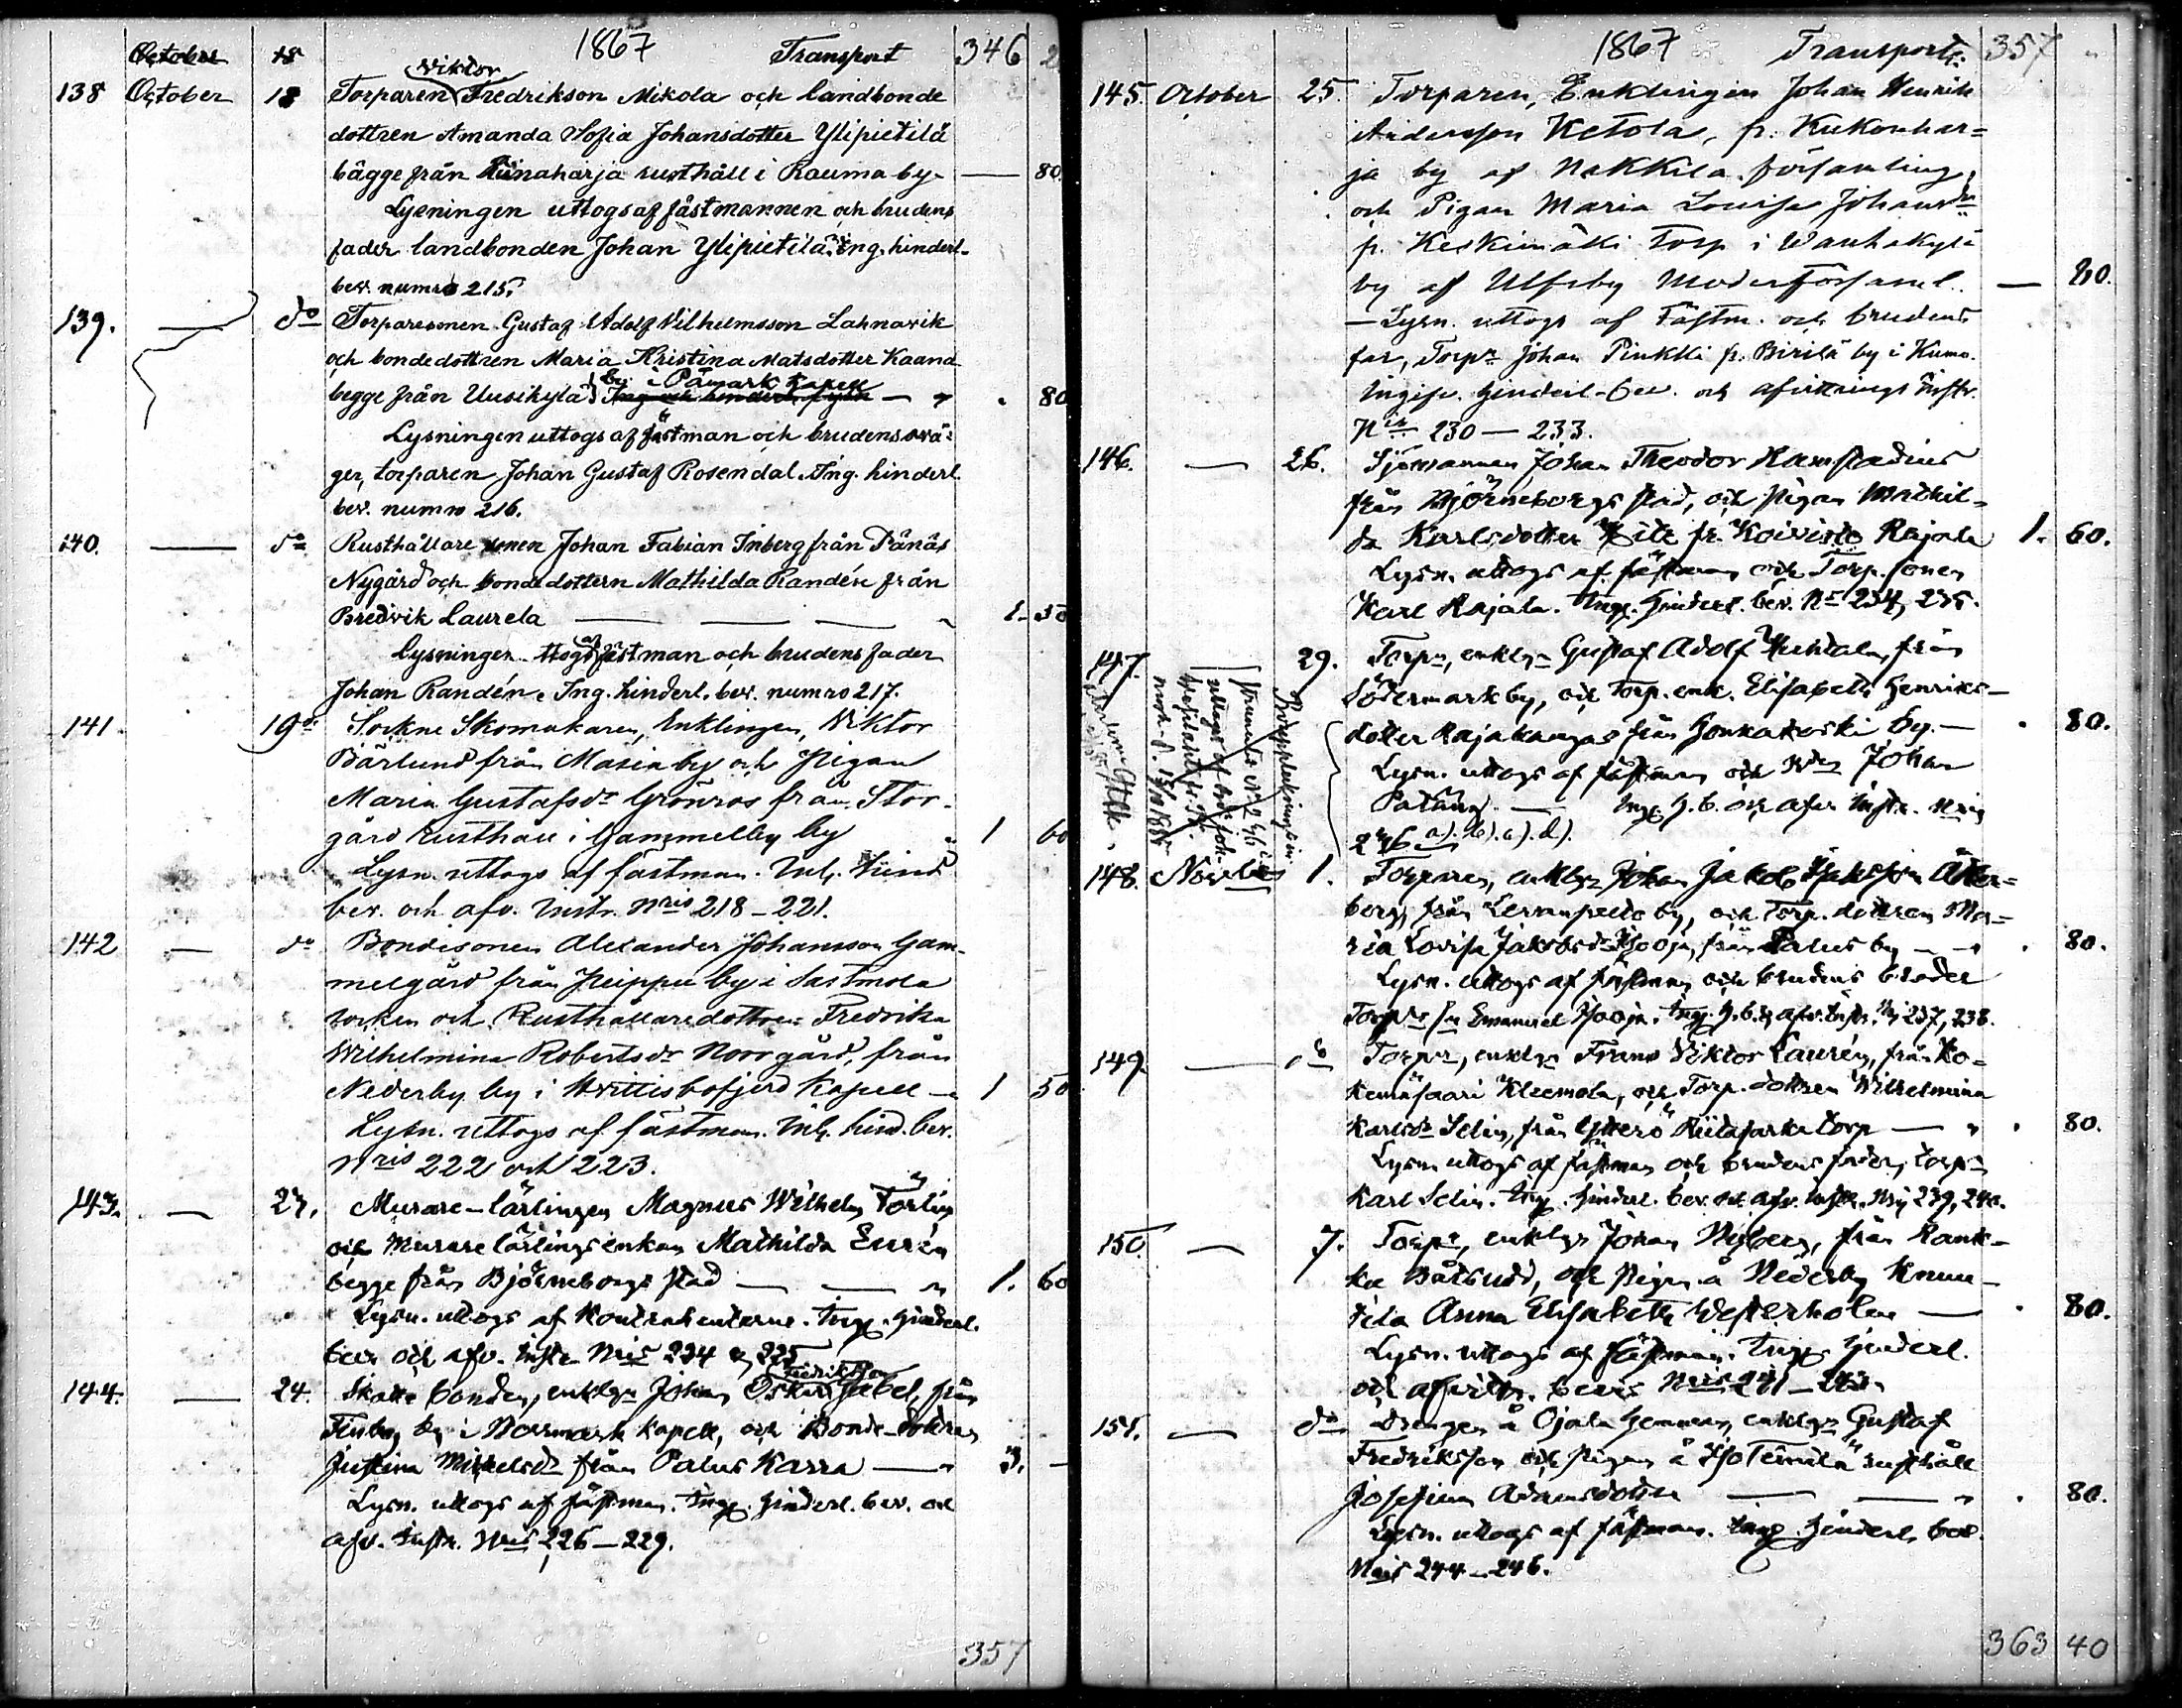 October 18 1867 Transport 346 2
Viktor
138 October 18 Torparen Fredrikson Mikola och landbonde
dottren Amanda Sofia Johansdotter Ylipietilä
bägge från Riinaharja rusthåll i Rauma by — 80.
Lysningen uttogs af fästmannen och brudens
fader landbonden Johan Ylipietilä. Ing. hinderl.
bev. numro 215.
139. — do Torparesonen Gustaf Adolf Vilhelmsson Lahnavik
och bondedottren Maria Kristina Matsdotter Kaana
by i Påmark Kapell
begge från Uusikylä — 80
Lysningen uttogs af fästman och brudens svå-
ger, torparen Johan Gustaf Rosendal. Ing. hinderl.
bev. numro 216.
140. — do Rusthållare sonen Johan Fabian Inberg från Pånäs
Nygård och bonde dottern Mathilda Randén från
Bredvik Laurela — — — 1. 50
af
Lysningen ttogs fästman och brudens fader
Johan Randén. Ing. hinderl. bev. numro 217.
141. 19de Sockne Skomakaren, Enklingen, Viktor
Bärlund från Masia by och Pigan
Maria Gustafsdr Grönros från Stor-
gård rusthåll i Gammelby by 1 60
Lysn. uttogs af fästman. Inl. hind
bev. och afv. instr. Nris 218–221.
142 — do Bondesonen Alexander Johansson Gam-
melgård från Peippu by i Sastmola
socken och Rusthållaredottren Fredrika
Wilhelmina Robertsdr Norrgård, från
Nederby by i Hvittisbofjerd Kapell — 1 50
Lysn. uttogs af fästman. Inl. hind. bev.
Nris 222 och 223.
143. — 23. Murare-lärlingen Magnus Wilhelm Törlin
och Murare lärlingsenkan Mathilda Eurén
begge från Björneborgs stad — — 1. 60
Lysn. uttogs af Kontrahenterne. Ingg. hinderl.
bevis och afv. instr Nris 224 & 225
Fredriksson
144. — 24. Skatte bonden, enklgn Johan Oskar Jabel, från
by i Norrmark kapell, och Bonde-dottren
Justina Mikelsdr från Palus Karra — 3. –
Lysn. uttogs af fästman. Ingg. hinderl. bev. och
afv. instr. Nris 226–229.
357
1867 Transport: 357
145. October 25. Torparen, Enklingen Johan Henrik
Andersson Ketola, fr. Kukonhar=
ja by af Nakkila församling,
och Pigan Maria Lovisa Johansdr
fr. Keskimäki Torp i Wanhakylä
by af Ulfsby Moderförsaml. — 80.
— Lysn. uttogs af Fästm. och brudens
far, Torpn Johan Pinkki fr. Birilä by i Kumo.
Ingifv. hinderl-bev. och afvittrings instr.
Nris 230 — 233.
146. — 26. Sjömannen Johan Theodor Ramstadius
från Björneborgs stad, och pigan Mathil-
da Karlsdotter fr. Koivisto Rajala 1. 60.
Lysn. uttogs af fästman och Torp. sonen
Karl Rajala. Ingg. hinderl. bev. Nr 234, 235.
147. 29. Torpn, enklgn Gustaf Adolf från
Södermark by, och Torp. enk. Elisabeth Henriks-
dotter Rajakangas från Honkakoski by. — 80.
Lysn. uttogs af fästman och Johan
— Ingg. h. b. och afv. instr. Nris
236 a). b). c). d).
148. Novber 1. Torparen, enklgn Johan Jakob Åker=
berg från by, och Torp. dottren Ma-
ria Lovisa Jakobsdr från Palus by — 80.
Lysn. uttogs af fästman och brudens broder
Torpr sn Emanuel Ingg. h. b. & afv. instr. Nris 237, 238.
149 — do Torpn, enklgn Frans Viktor Laurén, från Ko-
kemäsaari Kleemola, och Torp. dottren Wilhelmina
Karlsdr Selin, från Ytterö torp — 80.
Lysn. uttogs af fästman och brudens fader, torpn
Karl Selin. Ingg. hinderl. bev. och afv. instr. Nris 239, 240.
150. — 7. Torpn, enklgn Johan Nyberg, från Rank-
ka Båtsudd, och pigan å Nederby Knuu-
tila Anna Elisabeth Westerholm — 80.
Lysn. uttogs af fästman. Ingg. hinderl.
och afvittr. bevis Nris 241–243.
151. — do Drengen å Ojala hemman, enklgn Gustaf
Fredriksson och pigan å rusthåll
Josefina Adamsdotter — — 80.
Lysn. uttogs af fästman. Ingg. hinderl. bev.
Nris 244–246.
363 40